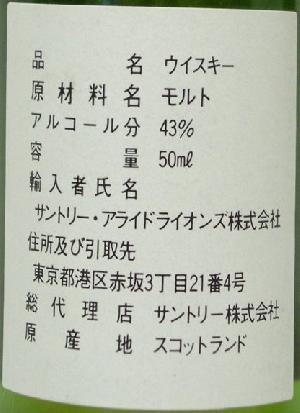 品名 ウイスキー
原材料名 モルト
アルコール分 43%
容量 50mℓ
輸入者氏名
サントリー・アライドライオンズ株式会社
住所及び引取先
東京都港区赤坂3丁目21番4号
総代理店 サントリー株式会社
原産地 スコットランド